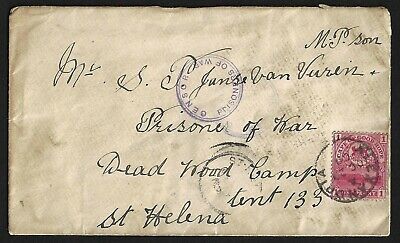 M.P. son
Mr. S. P. Janse van Vuren
CENSOR
PRISONERS OF WAR
Prisoner of War
Dead Wood Camp
tent 133
St Helena
1
1